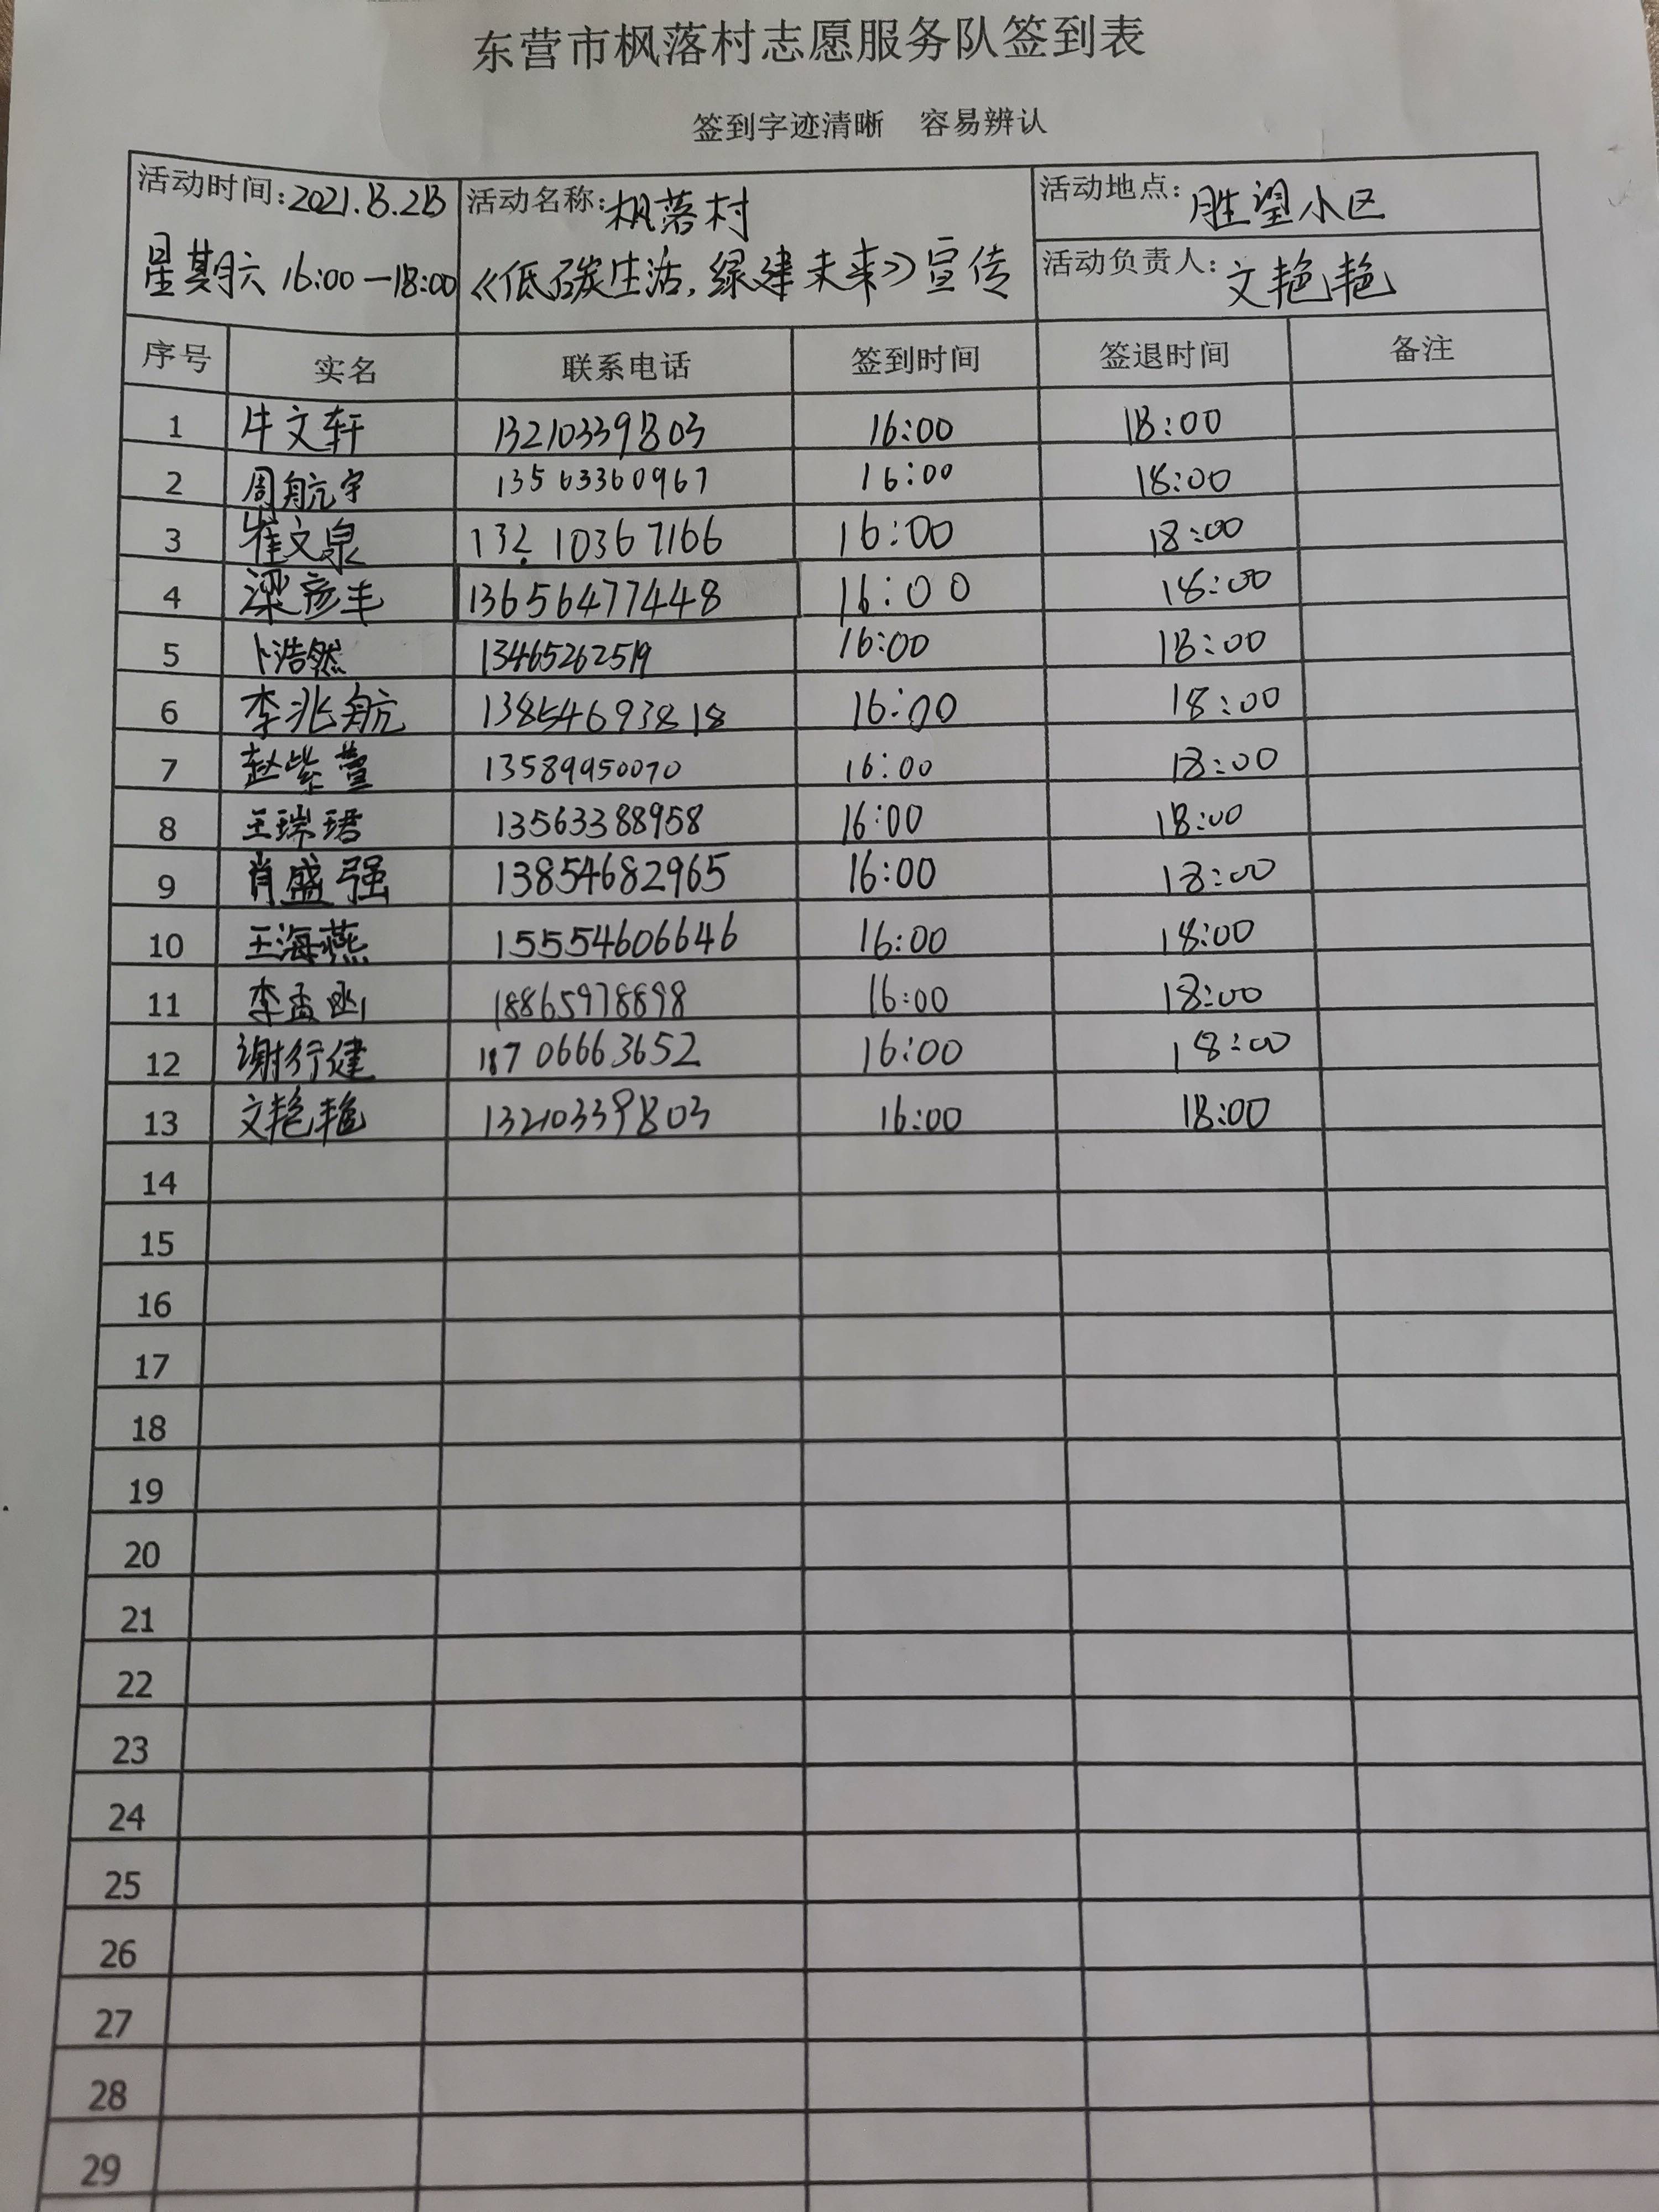 东营市枫落村志愿服务队签到表
签到字迹清晰 容易辨认
活动时间:2021.8.28 活动名称:枫落村 活动地点:胜望小区
星期六 16:00—18:00 《低碳生活,绿建未来》宣传 活动负责人:文艳艳
序号 实名 联系电话 签到时间 签退时间 备注
1 牛文轩 13210339803 16:00 18:00
2 周航宇 13563360967 16:00 18:00
3 崔文泉 13210367166 16:00 18:00
4 梁彦丰 13656477448 16:00 18:00
5 卜浩然 13465262519 16:00 18:00
6 李兆航 13854693818 16:00 18:00
7 赵紫萱 13589950070 16:00 18:00
8 王瑞珺 13563388958 16:00 18:00
9 肖盛强 13854682965 16:00 18:00
10 王海燕 15554606646 16:00 18:00
11 李孟 18865978898 16:00 18:00
12 谢行健 18706663652 16:00 18:00
13 文艳艳 13210339803 16:00 18:00
14
15
16
17
18
19
20
21
22
23
24
25
26
27
28
29